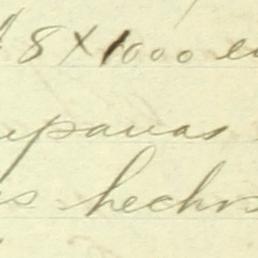 8 X 1000 e
upauas
s hechos